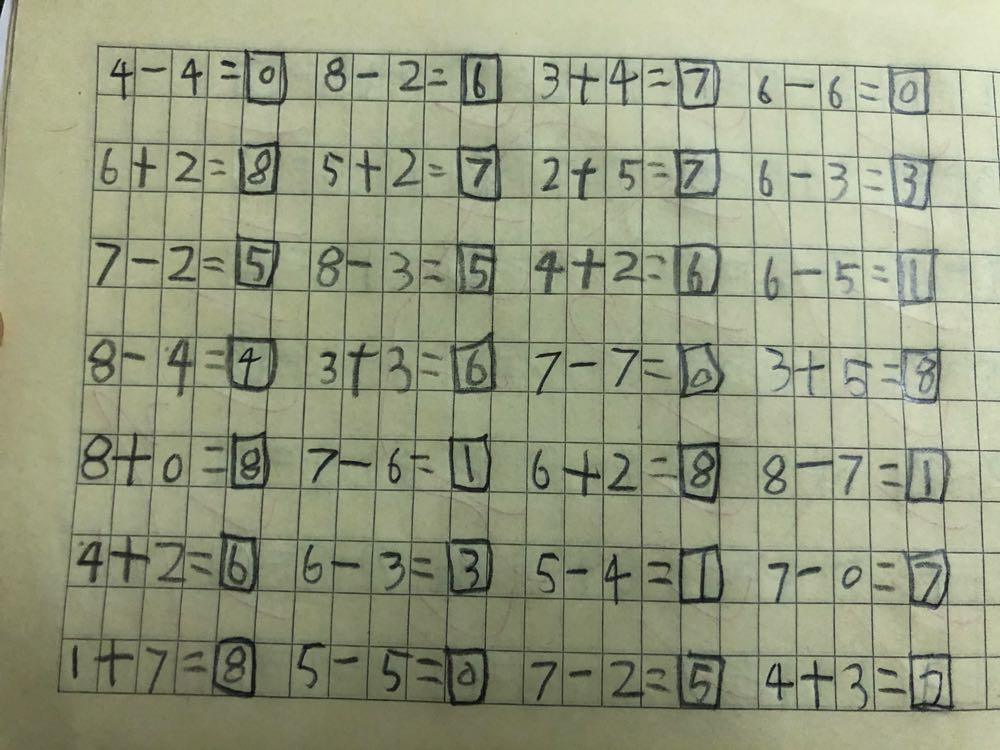 4-4=0 8-2=6 3+4=7 6-6=0
6+2=8 5+2=7 2+5=7 6-3=3
7-2=5 8-3=5 4+2=6 6-5=1
8-4=4 3+3=6 7-7=0 3+5=8
8+0=8 7-6=1 6+2=8 8-7=1
4+2=6 6-3=3 5-4=1 7-0=7
1+7=8 5-5=0 7-2=5 4+3=